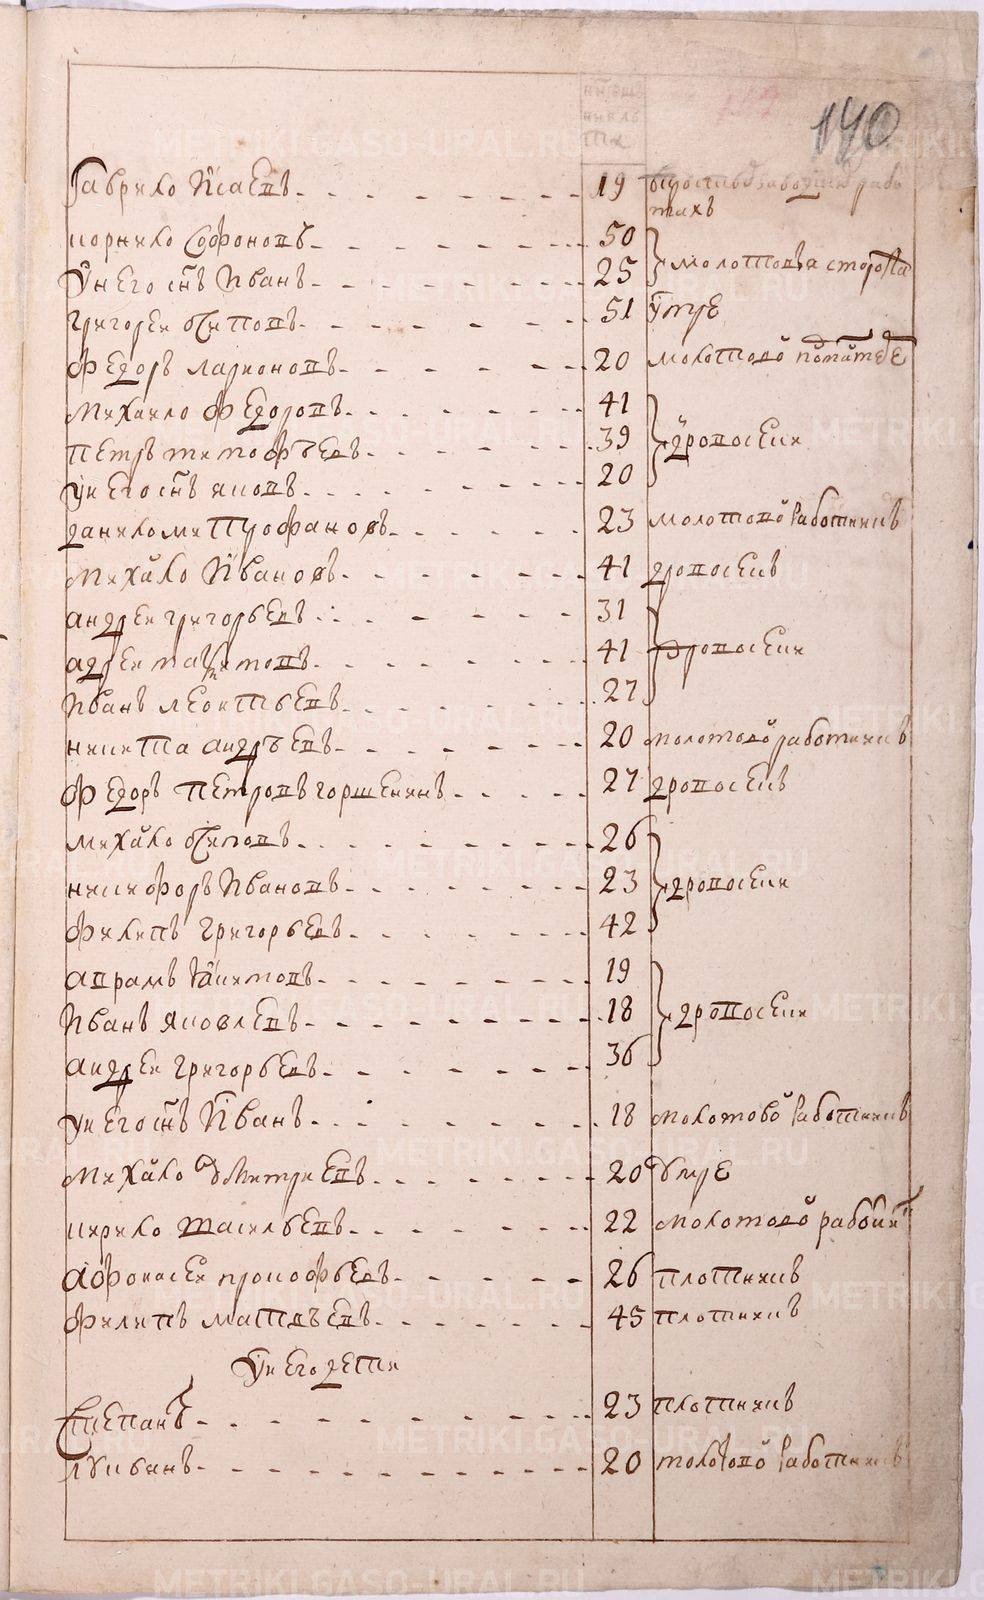 140
Гаврило Исаевъ 19 
тахъ
корнило Софоновъ 50
у него снъ Иванъ 25 молотоваго сторожа
Григореи Осиповъ 51 умре
Федоръ Ларионовъ 20 молотовои
Михаило Федоровъ 41
Петръ Тимофъевъ 39 дровосеки
у него снъ яковъ 20
данило митрофановъ 23 молотовои работникъ
Михаило Ивановъ 41 дровосекъ
андреи григорьевъ 31
41 дровосеки
Иванъ леонтьевъ 27
никита андръевъ 20 молотовои работникъ
Федоръ петровъ горшенинъ 27 дровосекъ
михаило осиповъ 26
никифоръ Ивановъ 23 дровосеки
Филипъ григорьевъ 42
аврамъ 19
Иванъ яковлевъ 18 дровосеки
андреи григорьевъ 36
у него снъ Иванъ 18 молотовои работникъ
михаило дмитриевъ 20 умре
кирило васильевъ 22 молотовои работник
афонасеи прокофьевъ 26 плотникъ
Филипъ матвъевъ 45 плотникъ
у него дети
степанъ 23 плотникъ
лукьянъ 20 молотовои работникъ
METRIKI.GASO-URAL.RU